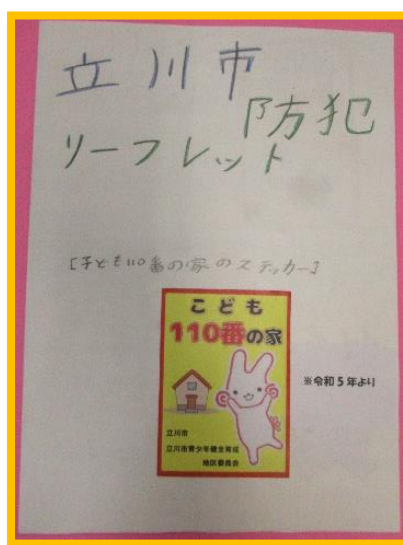 立川市
防犯
リーフレット
[子ども110番の家のステッカー]
こども
110番の家
※令和5年より
立川市
立川市青少年健全育成
地区委員会